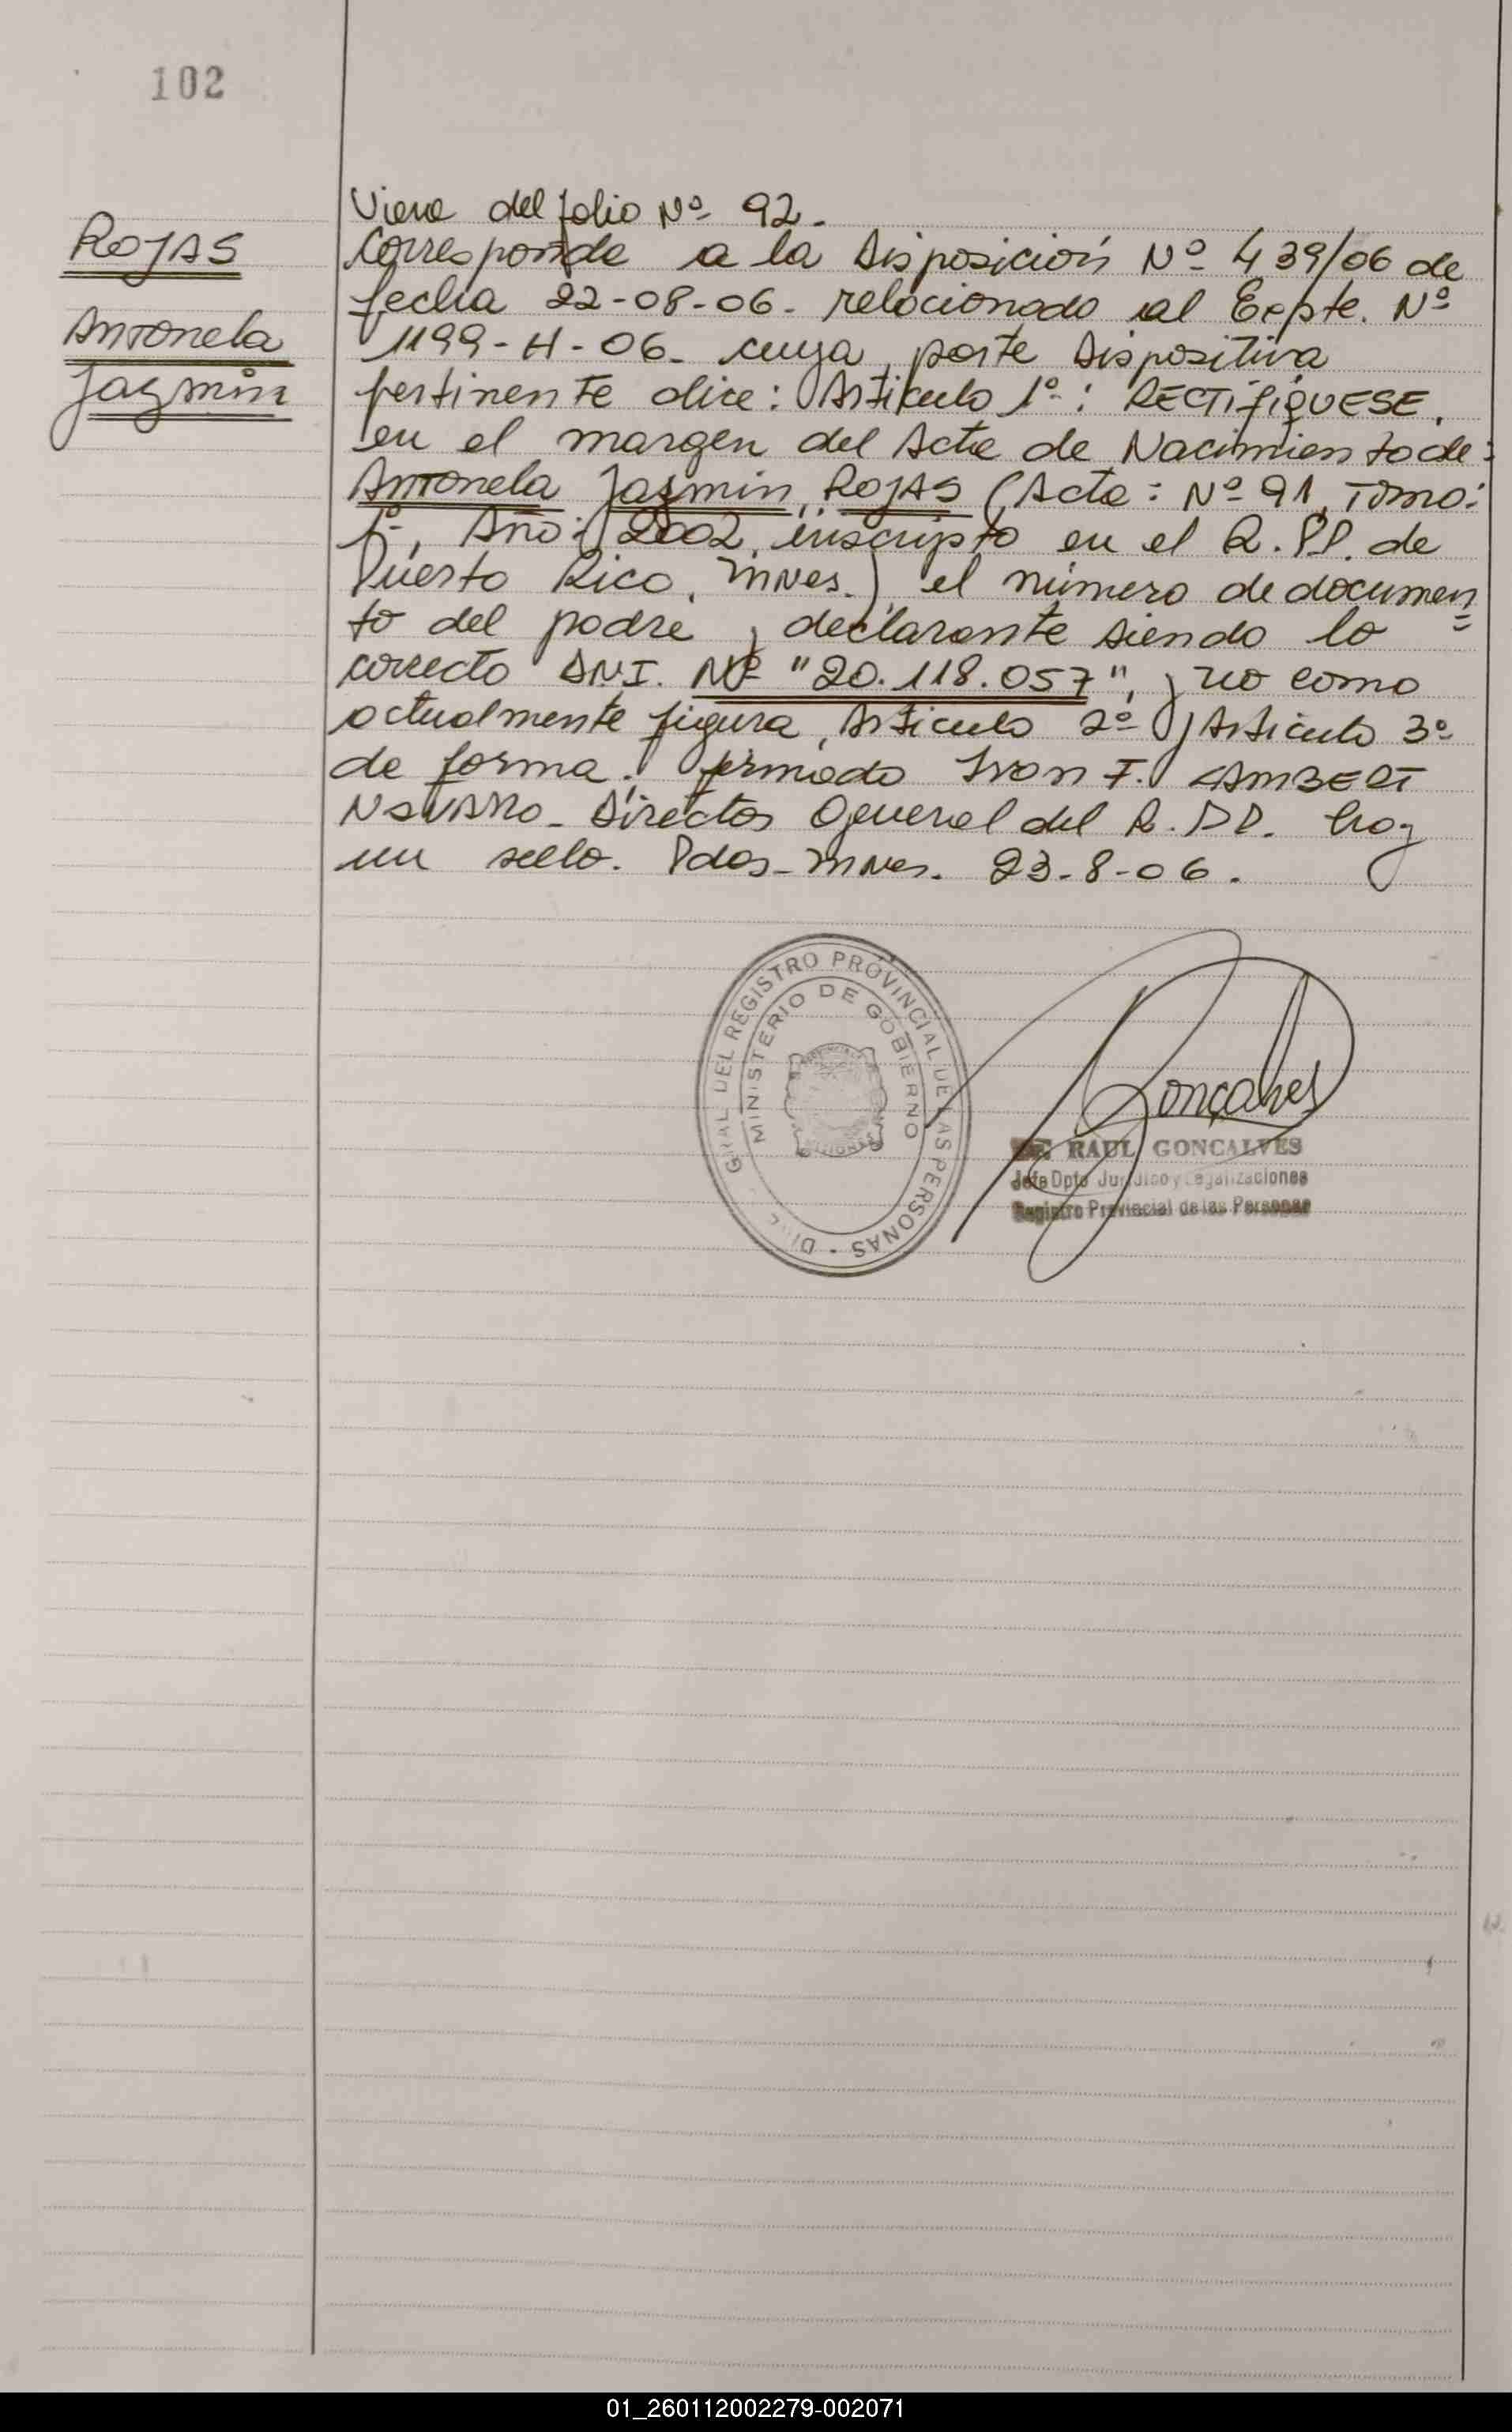 102
ROJAS
Antonela
Jazmin
Viene del folio Nº 92.
Corresponde a la Disposición Nº 439/06 de
fecha 22-08-06. relacionado al Expte. Nº
1199-H-06. cuya parte Dispositiva
pertinente dice: Artículo 1º: RECTIFIQUESE,
en el margen del Acta de Nacimiento de:
Antonela Jazmin ROJAS (Acta: Nº 91, Tomo:
1º, Año: 2002, inscripto en el R.PP. de
Puerto Rico, Mnes.) el número de documen
to del padre y declarante siendo lo
correcto DNI. Nº "20.118.057", y no como
actualmente figura, Artículo 2º y Artículo 3º
de forma. firmado Ivan F. LAMBERT
Navarro. Director General del R.PP. hay
un sello. Pdas-Mnes. 23-8-06.
GRAL DEL REGISTRO PROVINCIAL DE LAS PERSONAS -
MINISTERIO DE GOBIERNO
MISIONES
Goncalves
RAUL GONCALVES
Jefe Dpto Juridico y Legalizaciones
Registro Provincial de las Personas
01_260112002279-002071